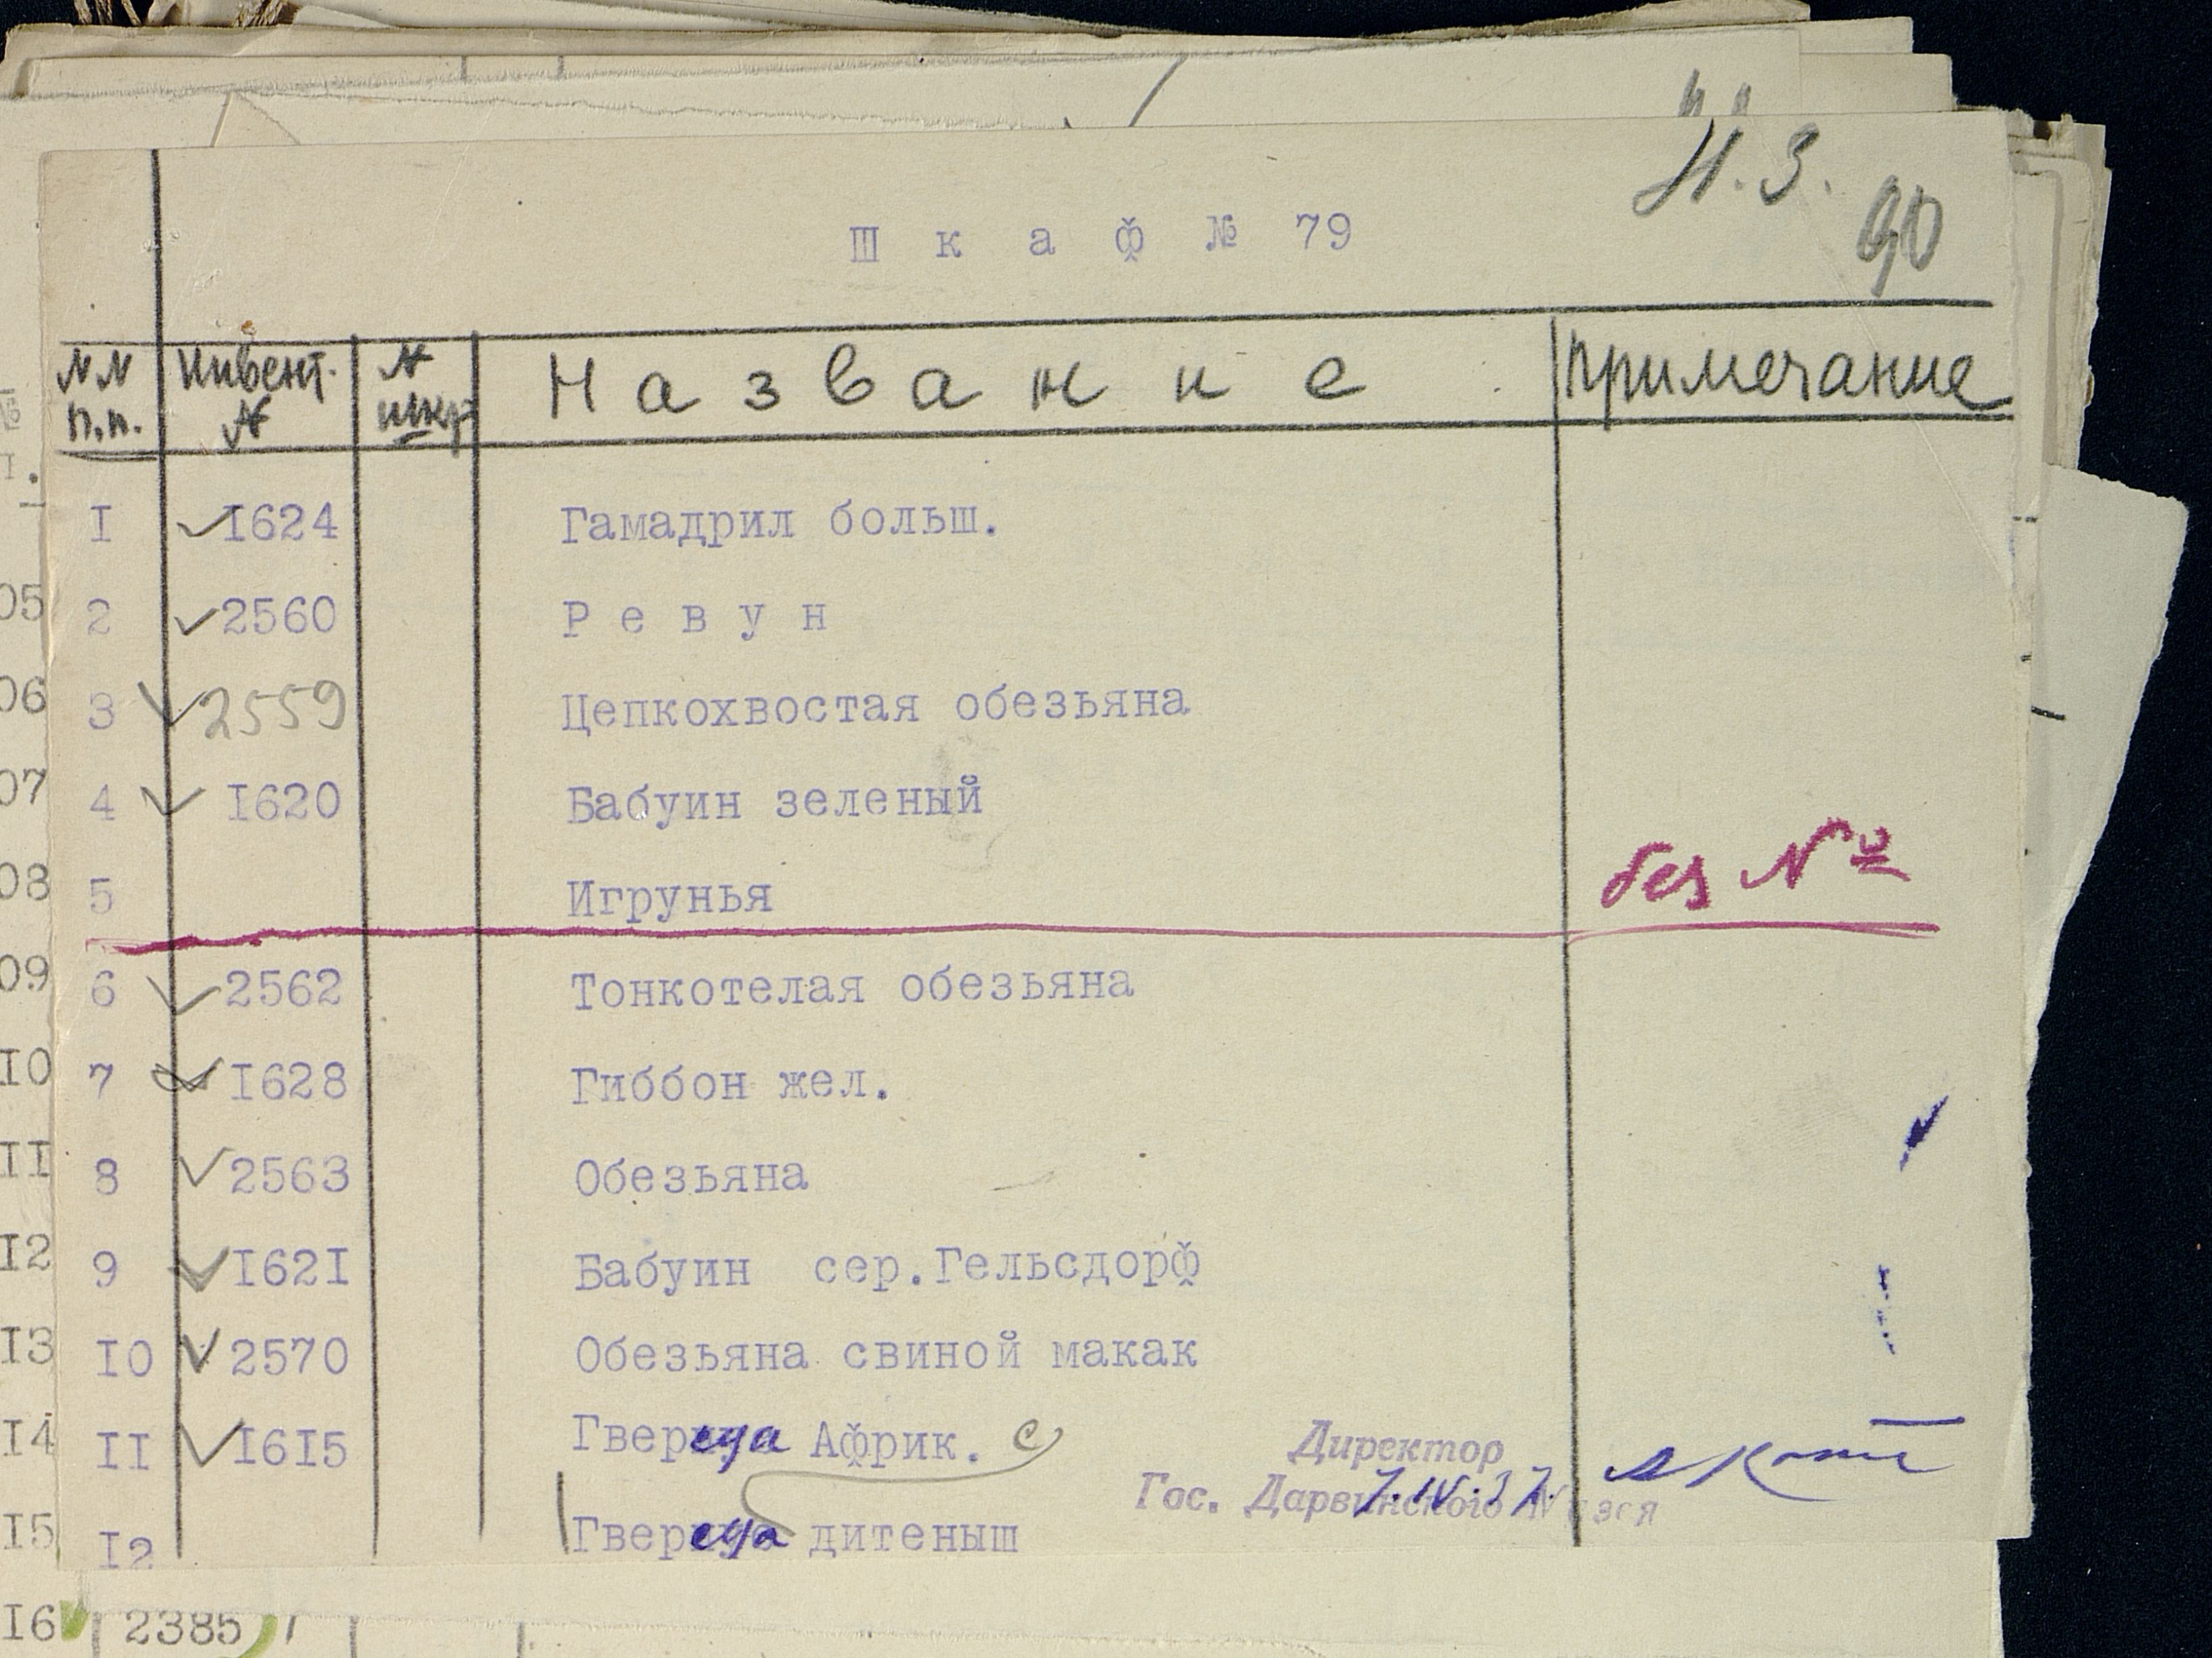 Н.З.
90
Шкаф № 79
NN п.п. Инвент. N N шкур Название Примечание
I 1624 Гамадрил больш.
2 2560 Ревун
3 2559 Цепкохвостая обезьяна
4 I620 Бабуин зеленый
5 Игрунья без №
6 2562 Тонкотелая обезьяна
7 I628 Гиббон жел.
8 2563 Обезьяна
9 I62I Бабуин сер.Гельсдорф
I0 2570 Обезьяна свиной макак
II I6I5 Гверецa Африк. с
Директор
Гос. Дарвинского Музея
7.IV.37.
I2 Гверецa дитеныш
05
06
07
08
09
I0
II
I2
I3
I4
I5
I6 2385